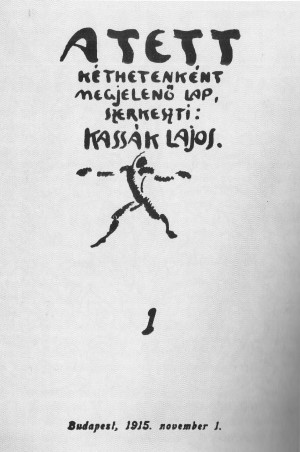 A TETT
KÉTHETENKÉNT
MEGJELENŐ LAP,
SZERKESZTI:
KASSÁK LAJOS.
1
Budapest, 1915. november 1.